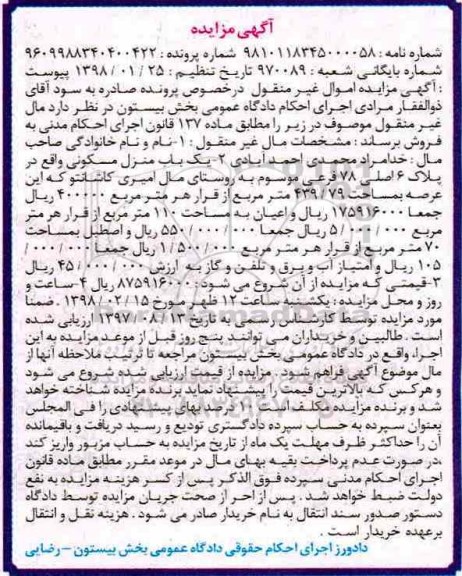 آگهی مزایده
شماره نامه : ۹۸۱۰۱۱۸۳۴۵۰۰۰۰۵۸ شماره پرونده : ۹۶۰۹۹۸۸۳۴۰۴۰۰۴۲۲
شماره بایگانی شعبه : ۹۷۰۰۸۹ تاریخ تنظیم : ۲۵ / ۰۱ / ۱۳۹۸ پیوست
: آگهی مزایده اموال غیر منقول در خصوص پرونده صادره به سود آقای
ذوالفقار مرادی اجرای احکام دادگاه عمومی بخش بیستون در نظر دارد مال
غیر منقول موصوف در زیر را مطابق ماده ۱۳۷ قانون اجرای احکام مدنی به
فروش برساند : مشخصات مال غیر منقول : ۱-نام و نام خانوادگی صاحب
مال : خدامراد محمدی احمد آبادی ۲- یک باب منزل مسکونی واقع در
پلاک ۶ اصلی ۷۸ فرعی موسوم به روستای مال امیری کاشانتو که این
عرصه بمساحت ۴۳۹/۷۹ متر مربع از قرار هر متر مربع ۴۰۰۰۰۰ ریال
جمعا ۱۷۵۹۱۶۰۰۰ ریال و اعیان به مساحت ۱۱۰ متر مربع از قرار هر متر
مربع ۰۰۰ / ۵/۰۰۰ ریال جمعا ۰۰۰ / ۰۰۰ / ۵۵۰ ریال و اصطبل بمساحت
۷۰ متر مربع از قرار هر متر مربع ۰۰۰ / ۵۰۰ / ۱ ریال جمعا ۰۰۰ / ۰۰۰ /
۱۰۵ ریال و امتیاز آب و برق و تلفن و گاز به ارزش ۰۰۰ / ۰۰۰ / ۴۵ ریال
۳-قیمتی که مزایده از آن شروع می شود : ۸۷۵۹۱۶۰۰۰ ریال ۴-ساعت و
روز و محل مزایده : یکشنبه ساعت ۱۲ ظهر مورخ ۱۵ / ۰۲ / ۱۳۹۸ . ضمنا
مورد مزایده توسط کارشناس رسمی به تاریخ ۱۳ / ۰۸ / ۱۳۹۷ ارزیابی شده
است . طالبین و خریداران می توانند پنج روز قبل از موعد مزایده به این
اجرا، واقع در دادگاه عمومی بخش بیستون مراجعه تا ترتیب ملاحظه آنها از
مال موضوع آگهی فراهم شود . مزایده از قیمت ارزیابی شده شروع می شود
و هرکس که بالاترین قیمت را پیشنهاد نماید برنده مزایده شناخته خواهد
شد و برنده مزایده مکلف است ۱۰ درصد بهای پیشنهادی را فی المجلس
بعنوان سپرده به حساب سپرده دادگستری تودیع و رسید دریافت و باقیمانده
آن را حداکثر ظرف مهلت یک ماه از تاریخ مزایده به حساب مزبور واریز کند
،در صورت عدم پرداخت بقیه بهای مال در موعد مقرر مطابق ماده قانون
اجرای احکام مدنی سپرده فوق الذکر پس از کسر هزینه مزایده به نفع
دولت ضبط خواهد شد . پس از احراز صحت جریان مزایده توسط دادگاه
دستور صدور سند انتقال به نام خریدار صادر می شود . هزینه نقل و انتقال
بر عهده خریدار است .
دادورز اجرای احکام حقوقی دادگاه عمومی بخش بیستون – رضایی